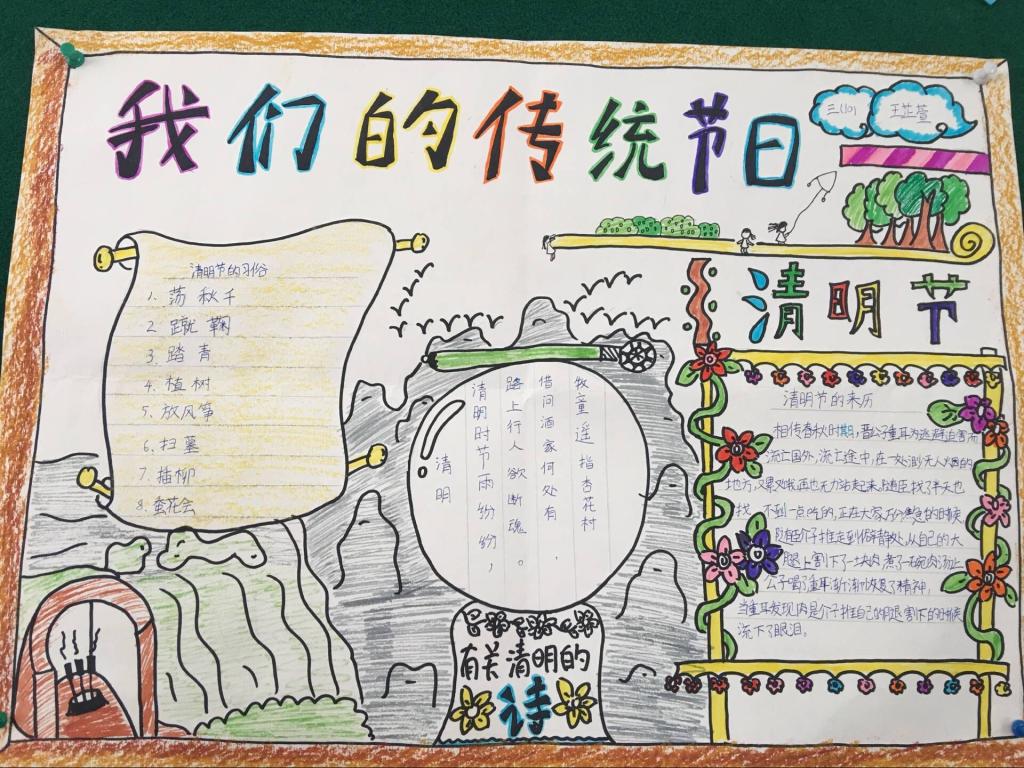 我们的传统节日
三(10)
王芷萱
清明节的习俗
1. 荡秋千
2. 蹴鞠
3. 踏青
4. 植树
5. 放风筝
6. 扫墓
7. 插柳
8. 蚕花会
清明
清明时节雨纷纷,
路上行人欲断魂。
借问酒家何处有,
牧童遥指杏花村
有关清明的
诗
清明节
清明节的来历
相传春秋时期,晋公子重耳为逃避迫害而
流亡国外,流亡途中,在一处渺无人烟的
地方,又累又饿再也无力站起来。随臣找了半天也
找不到一点吃的,正在大家万分焦急的时候
随臣介子推走到僻静处,从自己的大
腿上割下了一块肉煮了一碗肉汤让
公子喝了重耳渐渐恢复了精神,
当重耳发现肉是介子推自己的腿割下的时候
流下了眼泪。